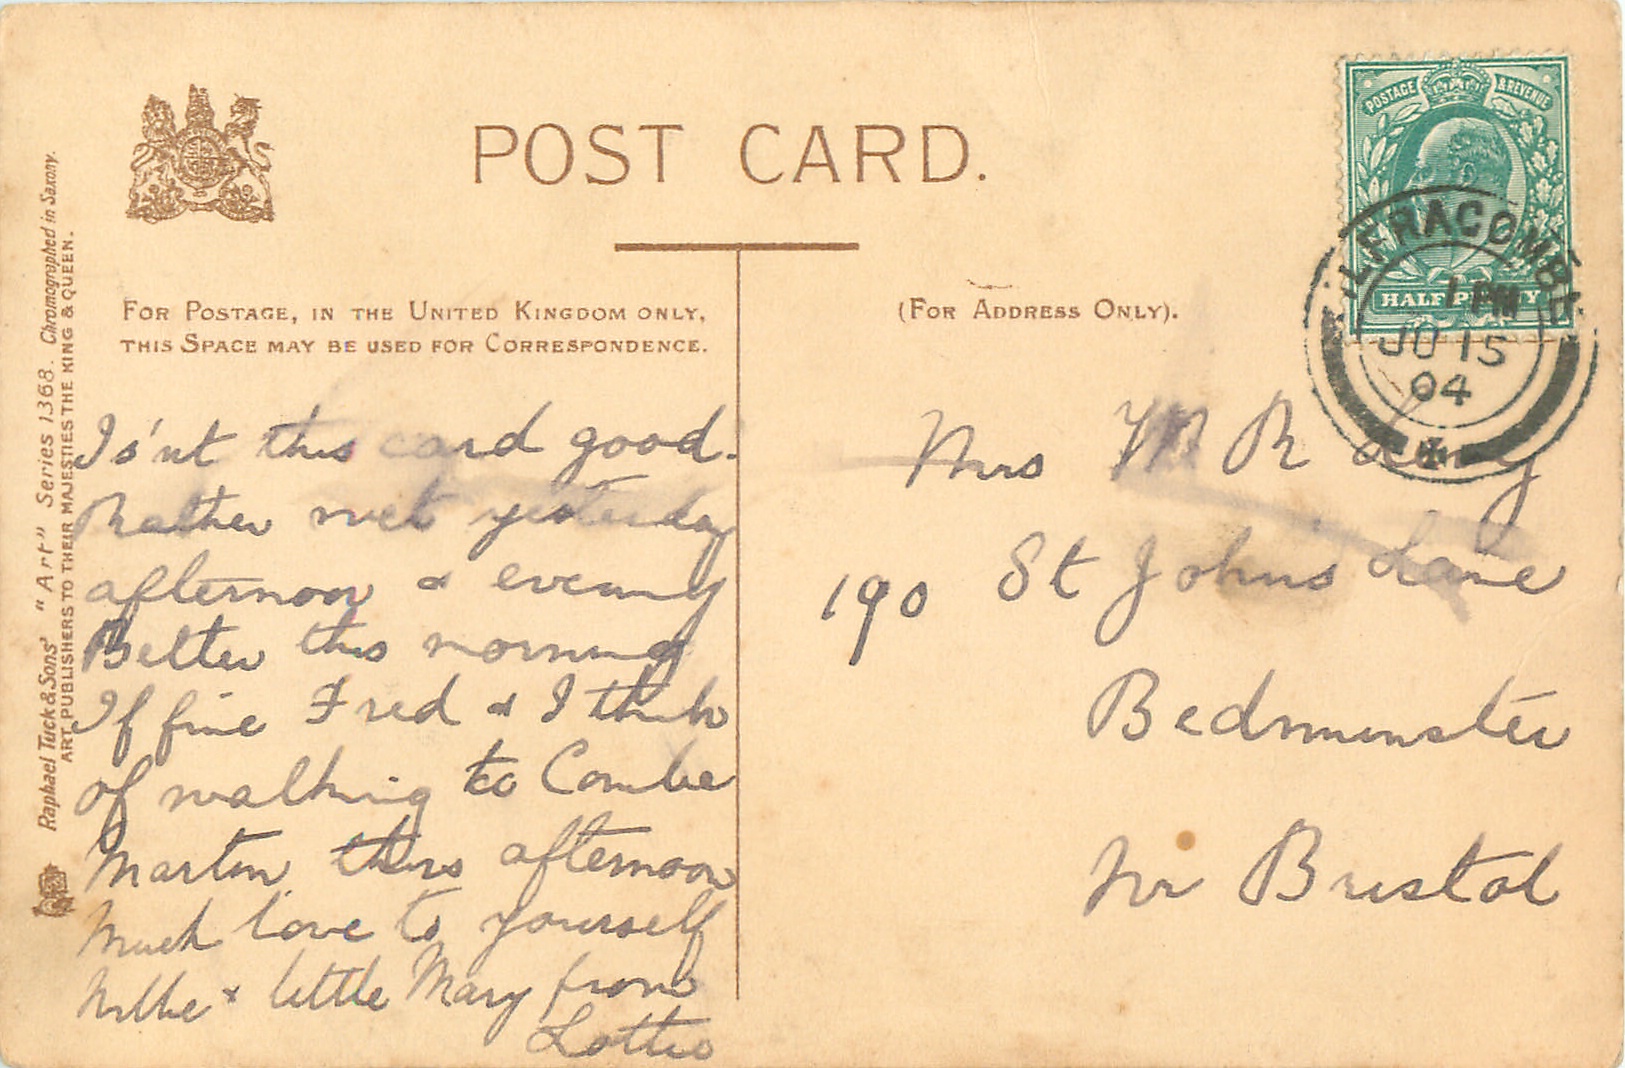 POST CARD.
FOR POSTAGE, IN THE UNITED KINGDOM ONLY,
THIS SPACE MAY BE USED FOR CORRESPONDENCE.
(FOR ADDRESS ONLY).
POSTAGE & REVENUE
HALFPENNY
ILFRACOMBE
1 PM
JU 15
04
Raphael Tuck & Sons' "Art" Series 1368. Chromographed in Saxony.
ART PUBLISHERS TO THEIR MAJESTIES THE KING & QUEEN.
Is'nt this card good.
Rather wet yesterday
afternoon & evening
Better this morning
If fine Fred & I think
of walking to Combe
Martin this afternoon
Much love to yourself
Millie & little Mary from
Lottie
Mrs W R
190 St Johns Lane
Bedminster
Nr Bristol